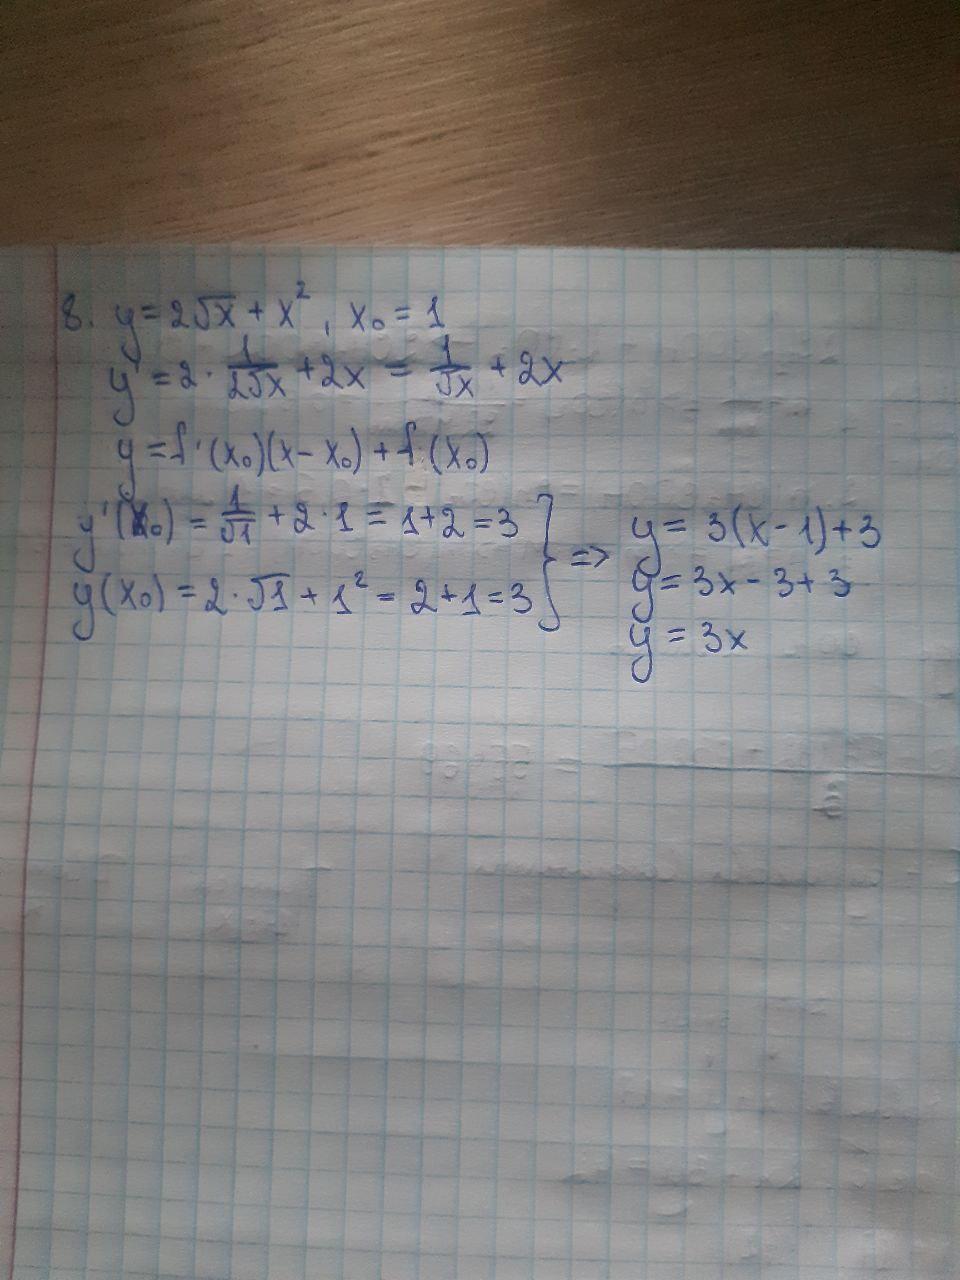 8. y = 2√x + x², x₀ = 1
y' = 2 · 1/(2√x) + 2x = 1/√x + 2x
y = f'(x₀)(x - x₀) + f(x₀)
y'(x₀) = 1/√1 + 2·1 = 1+2 = 3
y(x₀) = 2·√1 + 1² = 2+1 = 3
} => y = 3(x - 1) + 3
y = 3x - 3 + 3
y = 3x